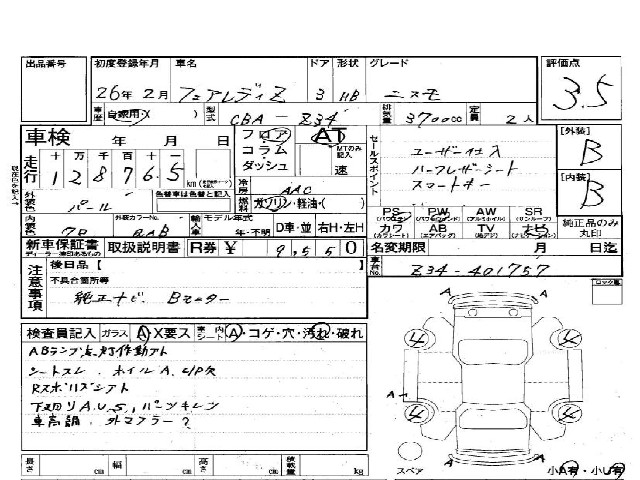 出品番号 初度登録年月 車名 ドア 形状 グレード 評価点
26年 2月 フェアレディZ 3 HB ニスモ 3.5
車歴 自家用・X( ) 型式 CBA-Z34 排気量 3700cc 定員 2人
車検 年 月 日 フロア AT セールスポイント [外装]
走行 十 万 千 百 十 コラム MTのみ記入 ユーザー仕入 B
1 2 8 7 6.5 km ダッシュ 速 ハーフレザーシート
冷房 AAC スマートキー [内装]
外装色 パール 色替車は色替と記入 燃料 ガソリン・軽油・( ) B
内装色 外装カラーNo. 輸入車 モデル年式 PS PW AW SR 純正品のみ丸印
QAB 年・不明 D車・並 右H・左H カワ AB TV ナビ
新車保証書 取扱説明書 R券 ¥ 9,550 名変期限 月 日迄
注意事項 後日品 [ 車台No. Z34-401757
不具合箇所等 ロック風
純正ナビ Bモニター
検査員記入 ガラス A X要ス 車シート内 A・コゲ・穴・汚れ・破れ
ABランプ点灯作動フト
シートスレ、ホイルA、
下回りA.U.S,
車高調 外マフラー?
A
4 4
A
4 4
A A
長さ cm 幅 cm 高さ cm 積載量 kg スペア 小A有・小U有